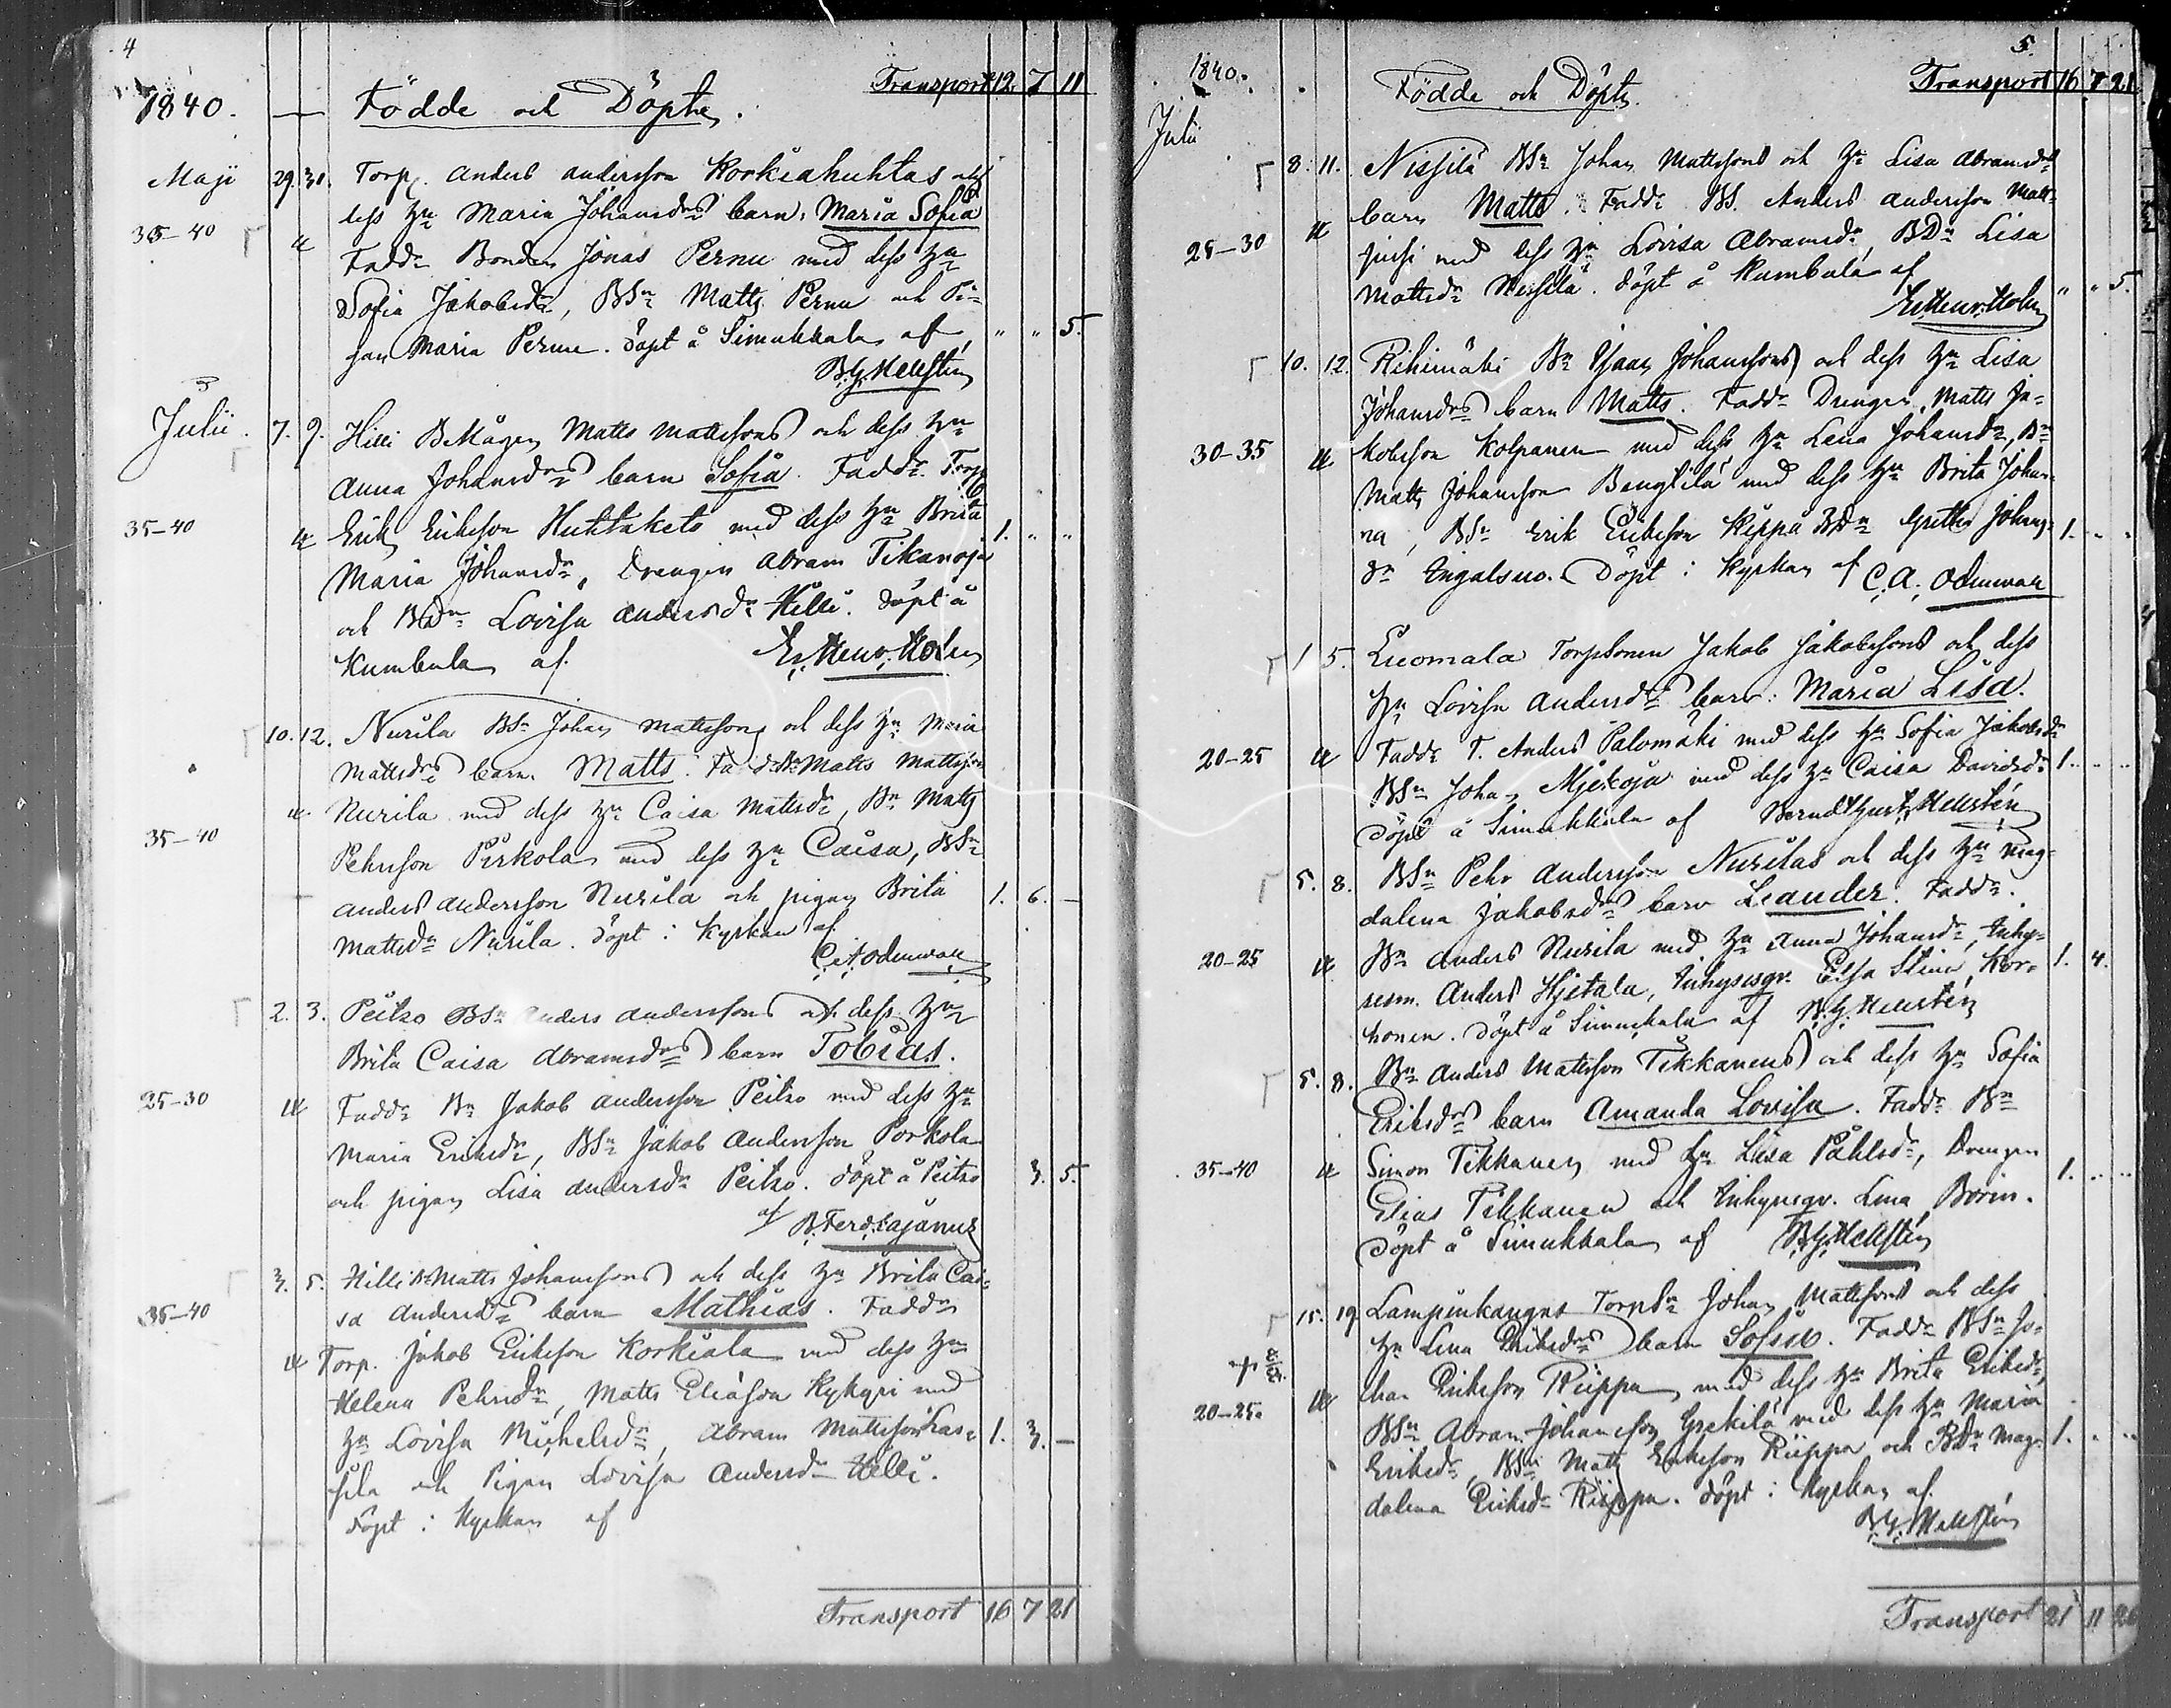 4
1840. — Födde och Döpte. Transport 12. 7 11
Maji 29. 31. Torp. Anders Andersson Korkiahuhtas och
dess Hu Maria Johansdrs barn: Maria Sofia
35–40 Fadd. Bonden Jonas Pernu med dess Hu
Sofia Jakobsdr, BSn Matts Pernu och Pi-
gan Maria Pernu. Döpt å Simukkala af " " 5.
B. G. Hellstén
Julii. 7. 9. Hilli BMågen Matts Mattssons och dess Hu
Anna Johansdrs barn Sofia. Faddr. Torp
35–40 Erik Eriksson Huhtaketo med dess Hu Brita 1. " "
Maria Johansdr, Drengen Abram Tikanoja
och BDn Lovisa Andersdr Hilli. Döpt å
Kumbula af. Er. Henr. Holm
10. 12. Nurila BSn Johan Mattssons och dess Hu Maria
Mattsdrs barn Matts. Fadd. Bn Matts Mattsson
Nurila med dess Hu Caisa Mattsdr, Bn Matts
35–40 Pehrsson Pirkola med dess Hu Caisa, BSn
Anders Andersson Nurila och pigan Brita 1. 6. –
Mattsdr Nurila. Döpt i Kyrkan af
C. A. Odenwall
2. 3. Peitso BSn Anders Anderssons och dess Hu
Brita Caisa Abramsdrs barn Tobias.
25–30 Faddr Bn Jakob Andersson Peitso med dess Hu
Maria Eriksdr, BSn Jakob Andersson Porkola
och pigan Lisa Andersdr Peitso. Döpt å Peitso 3. 5.
af B. Ferd. Cajanus
3. 5. Hilli Bn Matts Johanssons och dess Hu Brita Cai-
35–40 sa Andersdrs barn Mathias. Faddr
Torp. Jakob Eriksson Korkiala med dess Hu
Helena Pehrsdr, Matts Eliasson Kykyri med
Hu Lovisa Michelsdr, Abram Mattsson Las- 1. 3. –
sila och Pigan Lovisa Andersdr Hilli.
Döpt i Kyrkan af
Transport 16 7 21
5.
1840. Födde och Döpte. Transport 16 7 21
Julii
8. 11. Nissilä BSn Johan Mattssons och Hu Lisa Abramsdrs
barn Matts. Fadd. BS. Anders Andersson Matt-
25–30 med dess Hu Lovisa Abramsdr, BDn Lisa
Mattsdr Nissilä. Döpt å Kumbula af " " 5.
Er. Henr. Holm
10. 12. Rihimäki Bn Isaac Johanssons och dess Hu Lisa
Johansdrs barn Matts. Faddr Drengen Matts Ja-
30–35 kobsson Kolpanen med dess Hu Lena Johansdr, Bn
Matts Johansson Bengtilä med dess Hu Brita Johan-
na, BSn Erik Eriksson Kippä BDn Gretha Johans- 1. " "
dr Ingalsuo. Döpt i Kyrkan af C. A. Odenwall
1 5. Luomala Torpsonen Jakob Jakobssons och dess
Hu Lovisa Andersdrs barn: Maria Lisa.
20–25 Faddr T. Anders Palomäki med dess Hu Sofia Jakobsdr
BSn Johan Mjekoja med dess Hu Caisa Davidsdr 1. " "
Döpt å Simukkala af Berndt Gust. Hellstén
5. 8. BSn Pehr Andersson Nurilas och dess Hu Mag-
dalena Jakobsdrs barn Leander. Faddr.
20–25 Bn Anders Nurila med Hu Anna Johansdr, Inhy- 1. 4.
sesm. Anders Hjetala, Inhysesqv. Elsa Stina Kor-
honen. Döpt å Simukkala af B. G. Hellstén
5. 8. Bn Anders Mattsson Tikkanens och dess Hu Sofia
Eriksdrs barn Amanda Lovisa. Faddr Bn
35–40 Simon Tikkanen med Hu Lisa Påhlsdr, Drengen 1. " "
Elias Tikkanen och Inhysesqv. Lena Borin.
Döpt å Simukkala af B. G. Hellstén
15. 19 Lampinkangas TorpSn Johan Mattssons och dess
Hu Lena Eriksdrs barn Sofia. Faddr BSn Jo-
20–25. han Eriksson Riippa med dess Hu Brita Eriksdr,
BSn Abram Johansson Grekilä med dess Hu Maria
Eriksdr, BSn Matts Eriksson Riippa och BDn Mag- 1. " "
dalena Eriksdr Riippa. Döpt i Kyrkan af
B. G. Hellstén
Transport 21 11 26